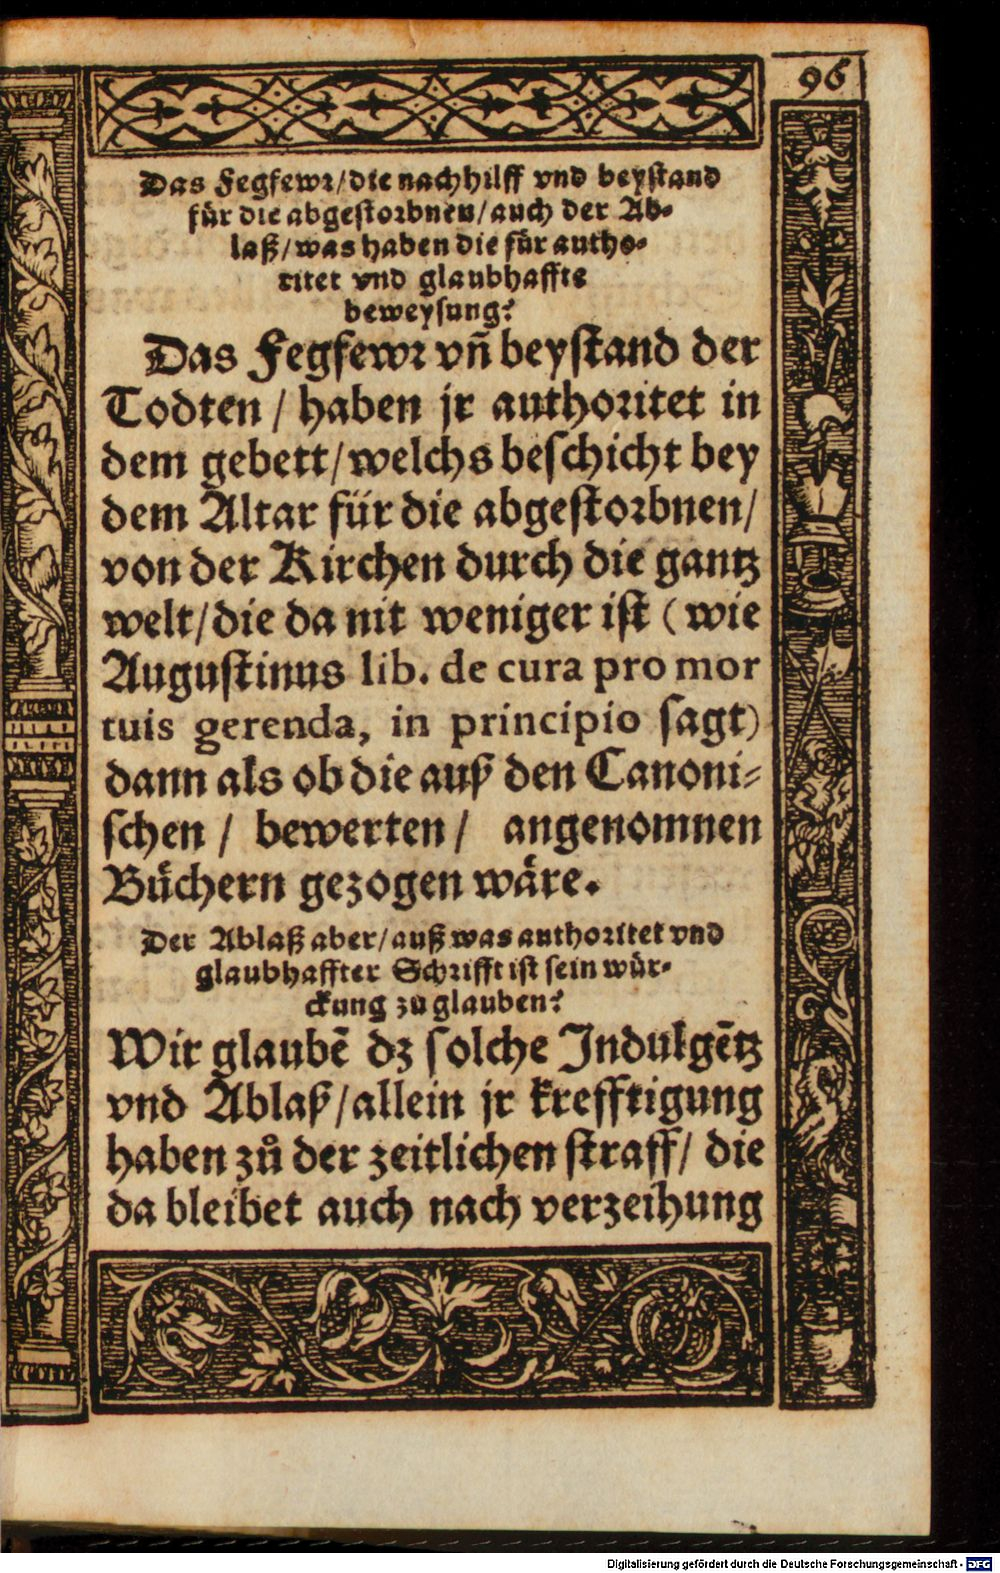 96
Das Fegfewr/die nachhilff vnd beystand
für die abgestorbnen/auch der Ab-
laß/was haben die für autho-
ritet vnd glaubhaffte
beweysung?
Das Fegfewr vñ beystand der
Todten / haben jr authoritet in
dem gebett/welchs beschicht bey
dem Altar für die abgestorbnen/
von der Kirchen durch die gantz
welt/die da nit weniger ist (wie
Augustinus lib. de cura pro mor
tuis gerenda, in principio sagt)
dann als ob die auß den Canoni-
schen / bewerten / angenomnen
Bůchern gezogen wäre.
Der Ablaß aber/auß was authoritet vnd
glaubhaffter Schrifft ist sein wür-
ckung zu glauben?
Wir glaubē dz solche Indulgētz
vnd Ablaß/allein jr krefftigung
haben zů der zeitlichen straff/ die
da bleibet auch nach verzeihung
Digitalisierung gefördert durch die Deutsche Forschungsgemeinschaft - DFG